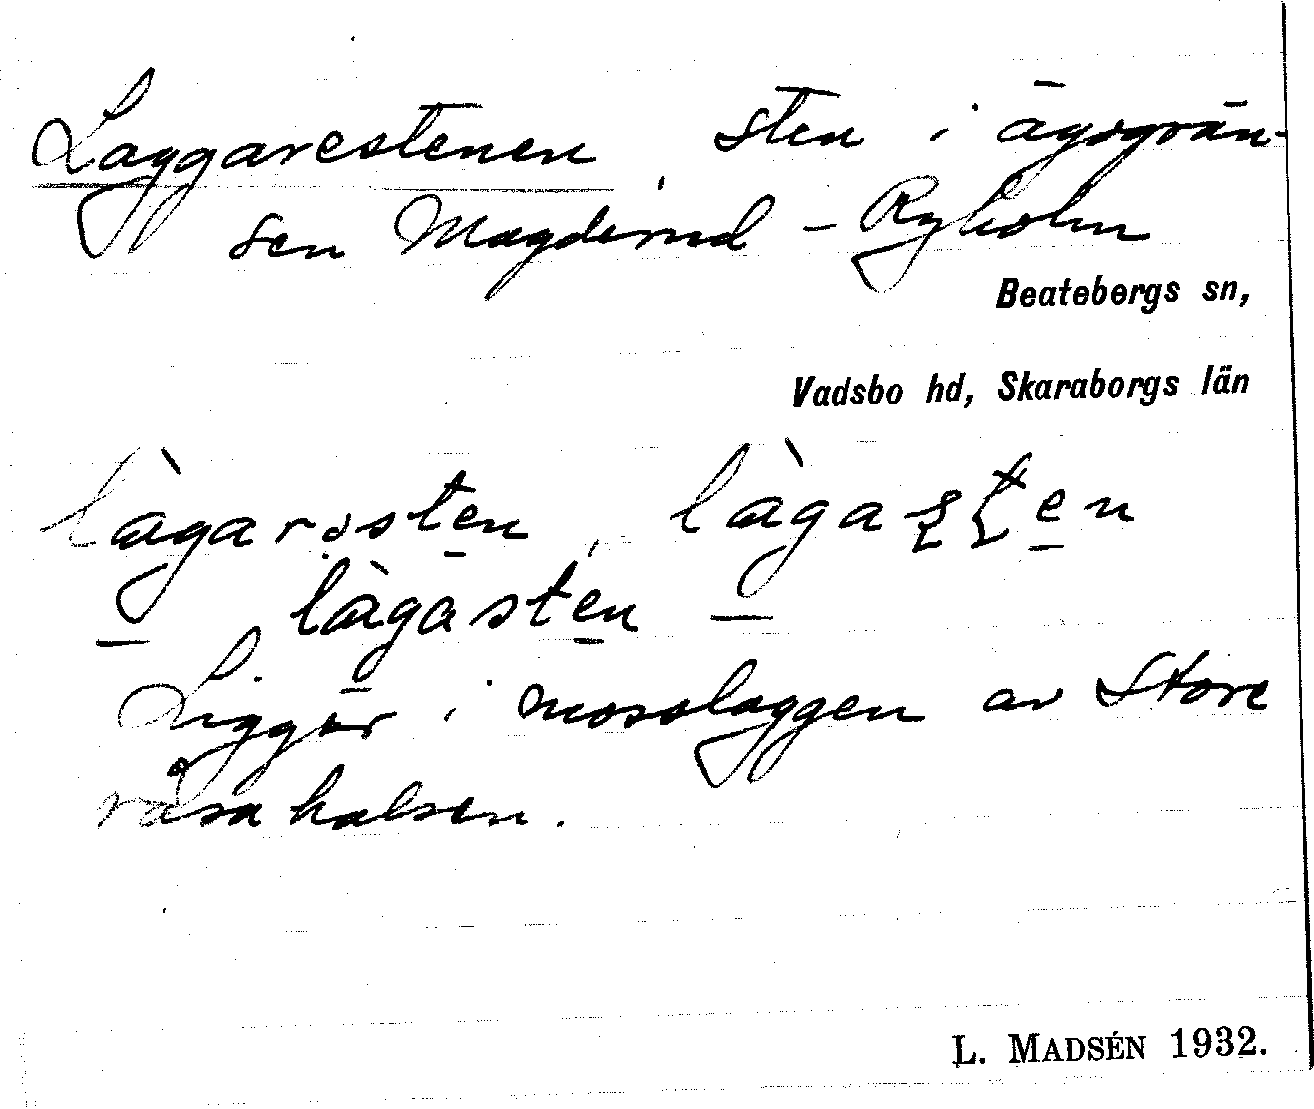 Laggarestenen, sten i ägogrän-
sen Magderud - Ryholm
Beatebergs sn,
Vadsbo hd, Skaraborgs län
làgarssten, làgasten
làgasten
Ligger i mosslaggen av Store
råsa halsen.
L. MADSÉN 1932.